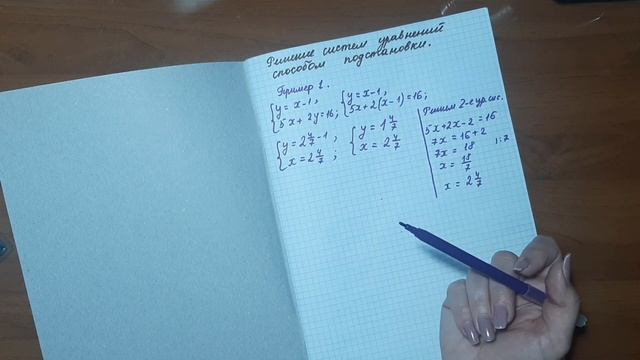 Решение систем уравнений
способом подстановки.
Пример 1.
{y = x-1, {y = x-1,
{5x + 2y = 16; {5x+2(x-1)=16;
{y = 2 4/7 - 1, {y = 1 4/7
{x = 2 4/7 ; {x = 2 4/7
Решим 2-е ур. сис.
5x+2x-2 = 16
7x = 16+2
7x = 18 |:7
x = 18/7
x = 2 4/7